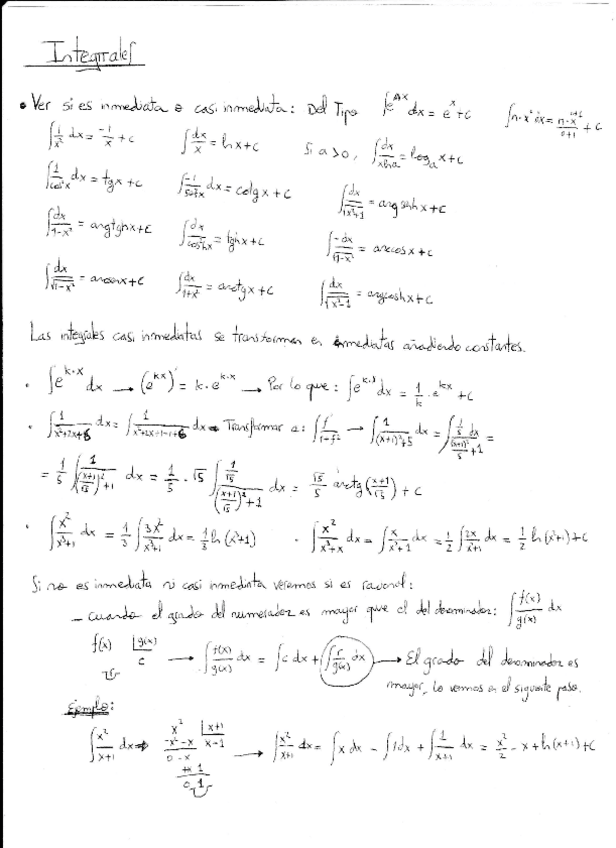 Integrales
• Ver si es inmediata o casi inmediata: Del Tipo ∫e^x dx = e^x + C ∫n·x^n dx = n·x^(n+1)/(n+1) + C
∫1/x² dx = -1/x + C ∫dx/x = ln x + C Si a>0, ∫dx/(x ln a) = log_a x + C
∫1/cos²x dx = tg x + C ∫-1/sen²x dx = cotg x + C ∫dx/√(x²+1) = argsenh x + C
∫dx/(1-x²) = argtgh x + C ∫dx/cosh²x = tgh x + C ∫-dx/√(1-x²) = arccos x + C
∫dx/√(1-x²) = arcsen x + C ∫dx/(1+x²) = arctg x + C ∫dx/√(x²-1) = argcosh x + C
Las integrales casi inmediatas se transforman en inmediatas añadiendo constantes.
• ∫e^(k·x) dx → (e^(kx))' = k·e^(k·x) → Por lo que: ∫e^(k·x) dx = 1/k · e^(kx) + C
• ∫1/(x²+2x+6) dx = ∫1/(x²+2x+1-1+6) dx → Transformar a: ∫f'/(1-f²) → ∫1/((x+1)²+5) dx = ∫(1/5 dx)/((x+1)²/5 + 1) =
= 1/5 ∫1/(((x+1)/√5)²+1) dx = 1/5 · √5 ∫(1/√5)/(((x+1)/√5)²+1) dx = √5/5 arctg((x+1)/√5) + C
• ∫x²/(x³+1) dx = 1/3 ∫3x²/(x³+1) dx = 1/3 ln(x³+1) • ∫x²/(x³+x) dx = ∫x/(x²+1) dx = 1/2 ∫2x/(x²+1) dx = 1/2 ln(x²+1) + C
Si no es inmediata ni casi inmediata veremos si es racional:
- Cuando el grado del numerador es mayor que el del denominador: ∫f(x)/g(x) dx
f(x) |g(x)
r c → ∫f(x)/g(x) dx = ∫c dx + ∫r/g(x) dx → El grado del denominador es
mayor, lo vemos en el siguiente paso.
Ejemplo:
∫x²/(x+1) dx ⇒ x² |x+1
-x²-x x-1 → ∫x²/(x+1) dx = ∫x dx - ∫1dx + ∫1/(x+1) dx = x²/2 - x + ln(x+1) + C
0 -x
+x 1
0 1